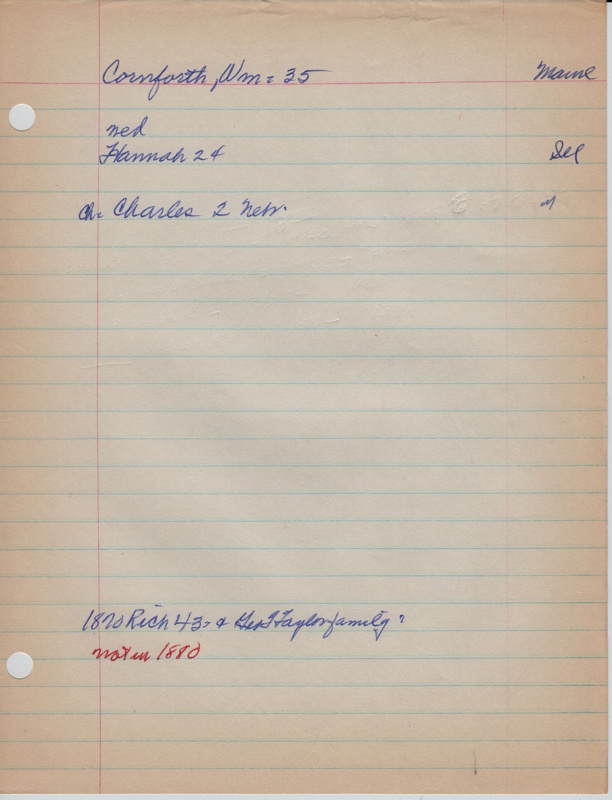 Cornforth, Wm = 35 Maine
ned
Hannah 24 Del
ch = Charles 2 Neb. "
1870 Rich 43 = & Taylor family ?
not in 1880